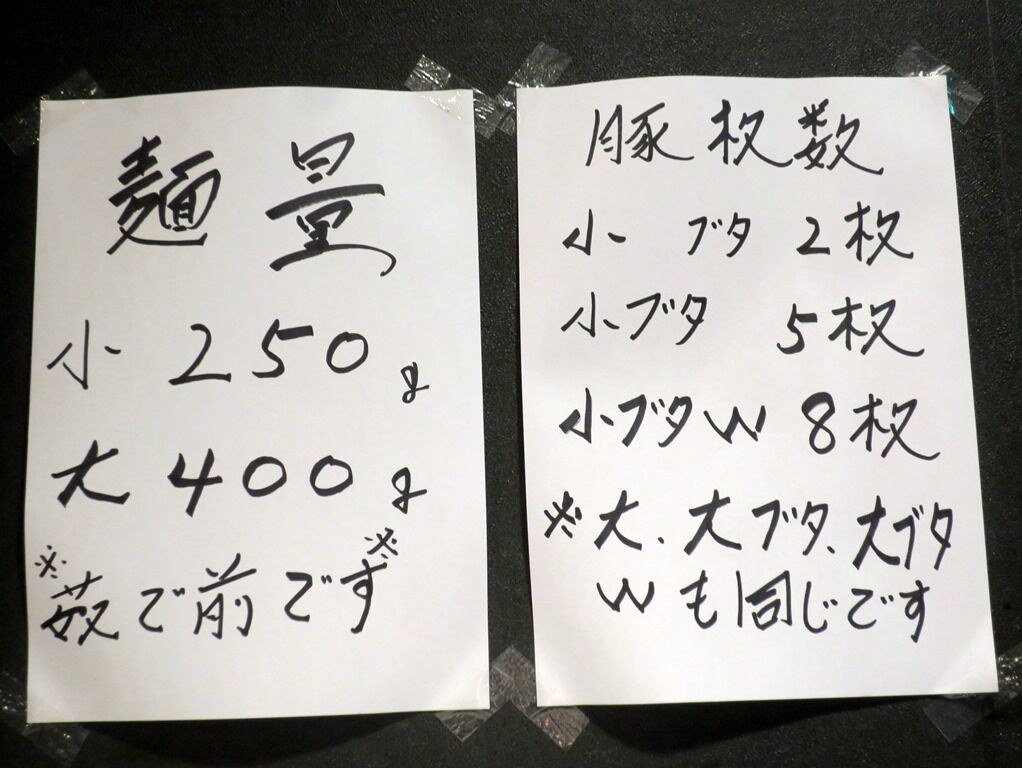 麺量
小 250g
大 400g
※茹で前です※
豚枚数
小 ブタ 2枚
小ブタ 5枚
小ブタW 8枚
※大、大ブタ、大ブタ
Wも同じです